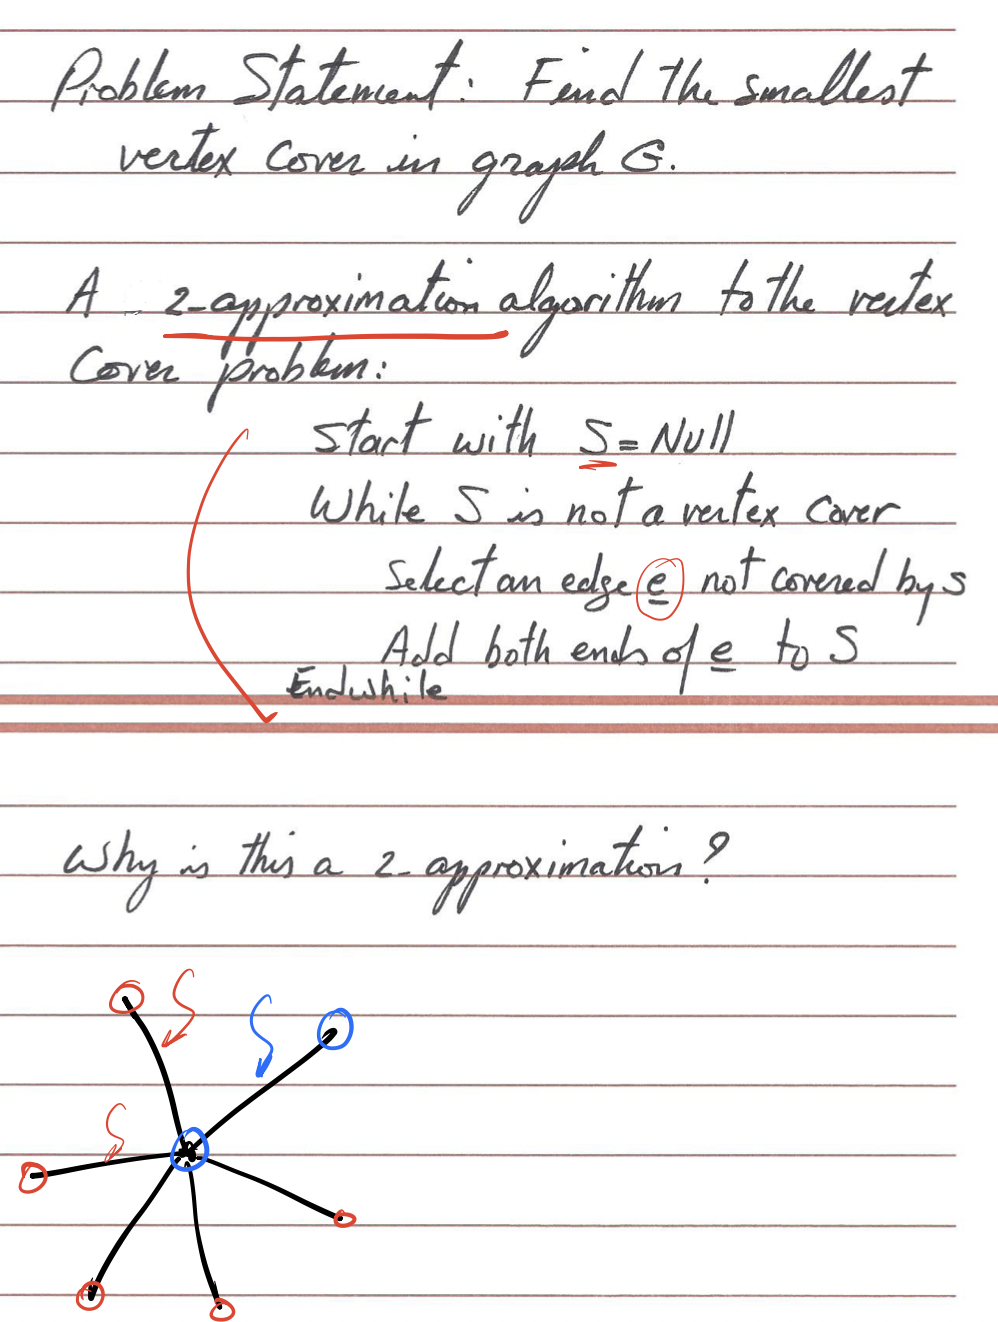 Problem Statement: Find the smallest
vertex cover in graph G.
A 2-approximation algorithm to the vertex
Cover problem:
Start with S = Null
While S is not a vertex cover
Select an edge e not covered by S
Add both ends of e to S
Endwhile
Why is this a 2-approximation?